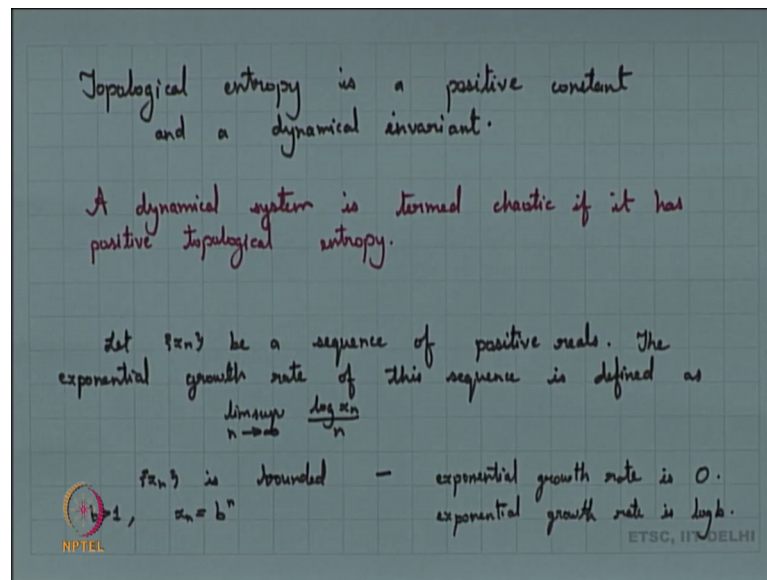 Topological entropy is a positive constant
and a dynamical invariant.
A dynamical system is termed chaotic if it has
positive topological entropy.
Let {xn} be a sequence of positive reals. The
exponential growth rate of this sequence is defined as
limsup n→∞ log xn / n
{xn} is bounded – exponential growth rate is 0.
b>1, xn = b^n exponential growth rate is log b.
NPTEL
ETSC, IIT DELHI